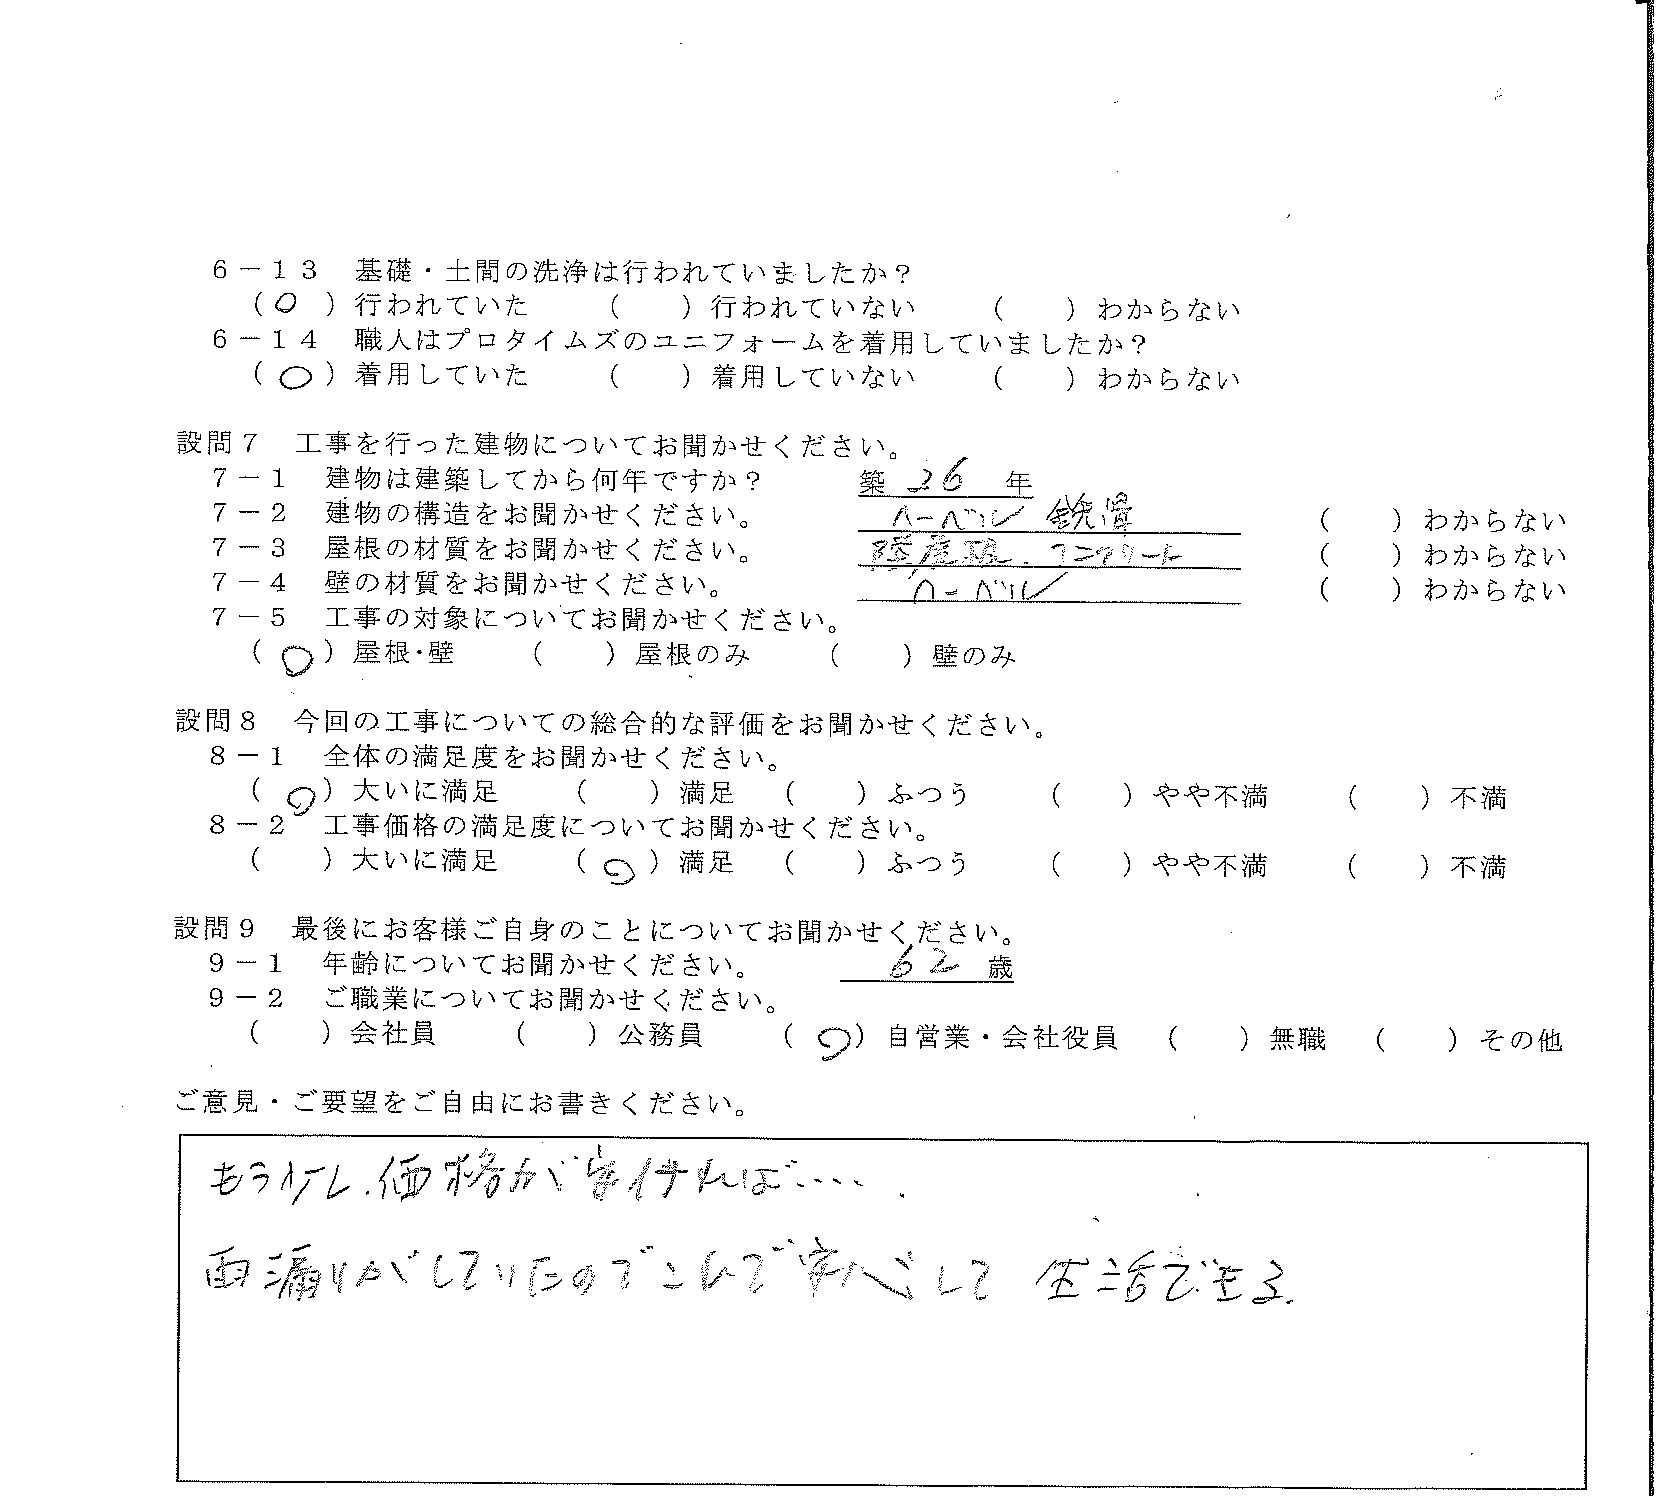 6－13　基礎・土間の洗浄は行われていましたか？
（ ○ ）行われていた　（　　）行われていない　（　　）わからない
6－14　職人はプロタイムズのユニフォームを着用していましたか？
（ ○ ）着用していた　（　　）着用していない　（　　）わからない
設問7　工事を行った建物についてお聞かせください。
7－1　建物は建築してから何年ですか？　築 26 年
7－2　建物の構造をお聞かせください。　ヘーベル 鉄骨　（　　）わからない
7－3　屋根の材質をお聞かせください。　陸屋根．コンクリート　（　　）わからない
7－4　壁の材質をお聞かせください。　ヘーベル　（　　）わからない
7－5　工事の対象についてお聞かせください。
（ ○ ）屋根・壁　（　　）屋根のみ　（　　）壁のみ
設問8　今回の工事についての総合的な評価をお聞かせください。
8－1　全体の満足度をお聞かせください。
（ ○ ）大いに満足　（　　）満足　（　　）ふつう　（　　）やや不満　（　　）不満
8－2　工事価格の満足度についてお聞かせください。
（　　）大いに満足　（ ○ ）満足　（　　）ふつう　（　　）やや不満　（　　）不満
設問9　最後にお客様ご自身のことについてお聞かせください。
9－1　年齢についてお聞かせください。　62 歳
9－2　ご職業についてお聞かせください。
（　　）会社員　（　　）公務員　（ ○ ）自営業・会社役員　（　　）無職　（　　）その他
ご意見・ご要望をご自由にお書きください。
もう少し．価格が安ければ‥‥．
雨漏りがしていたのでこれで安心して 生活できる．